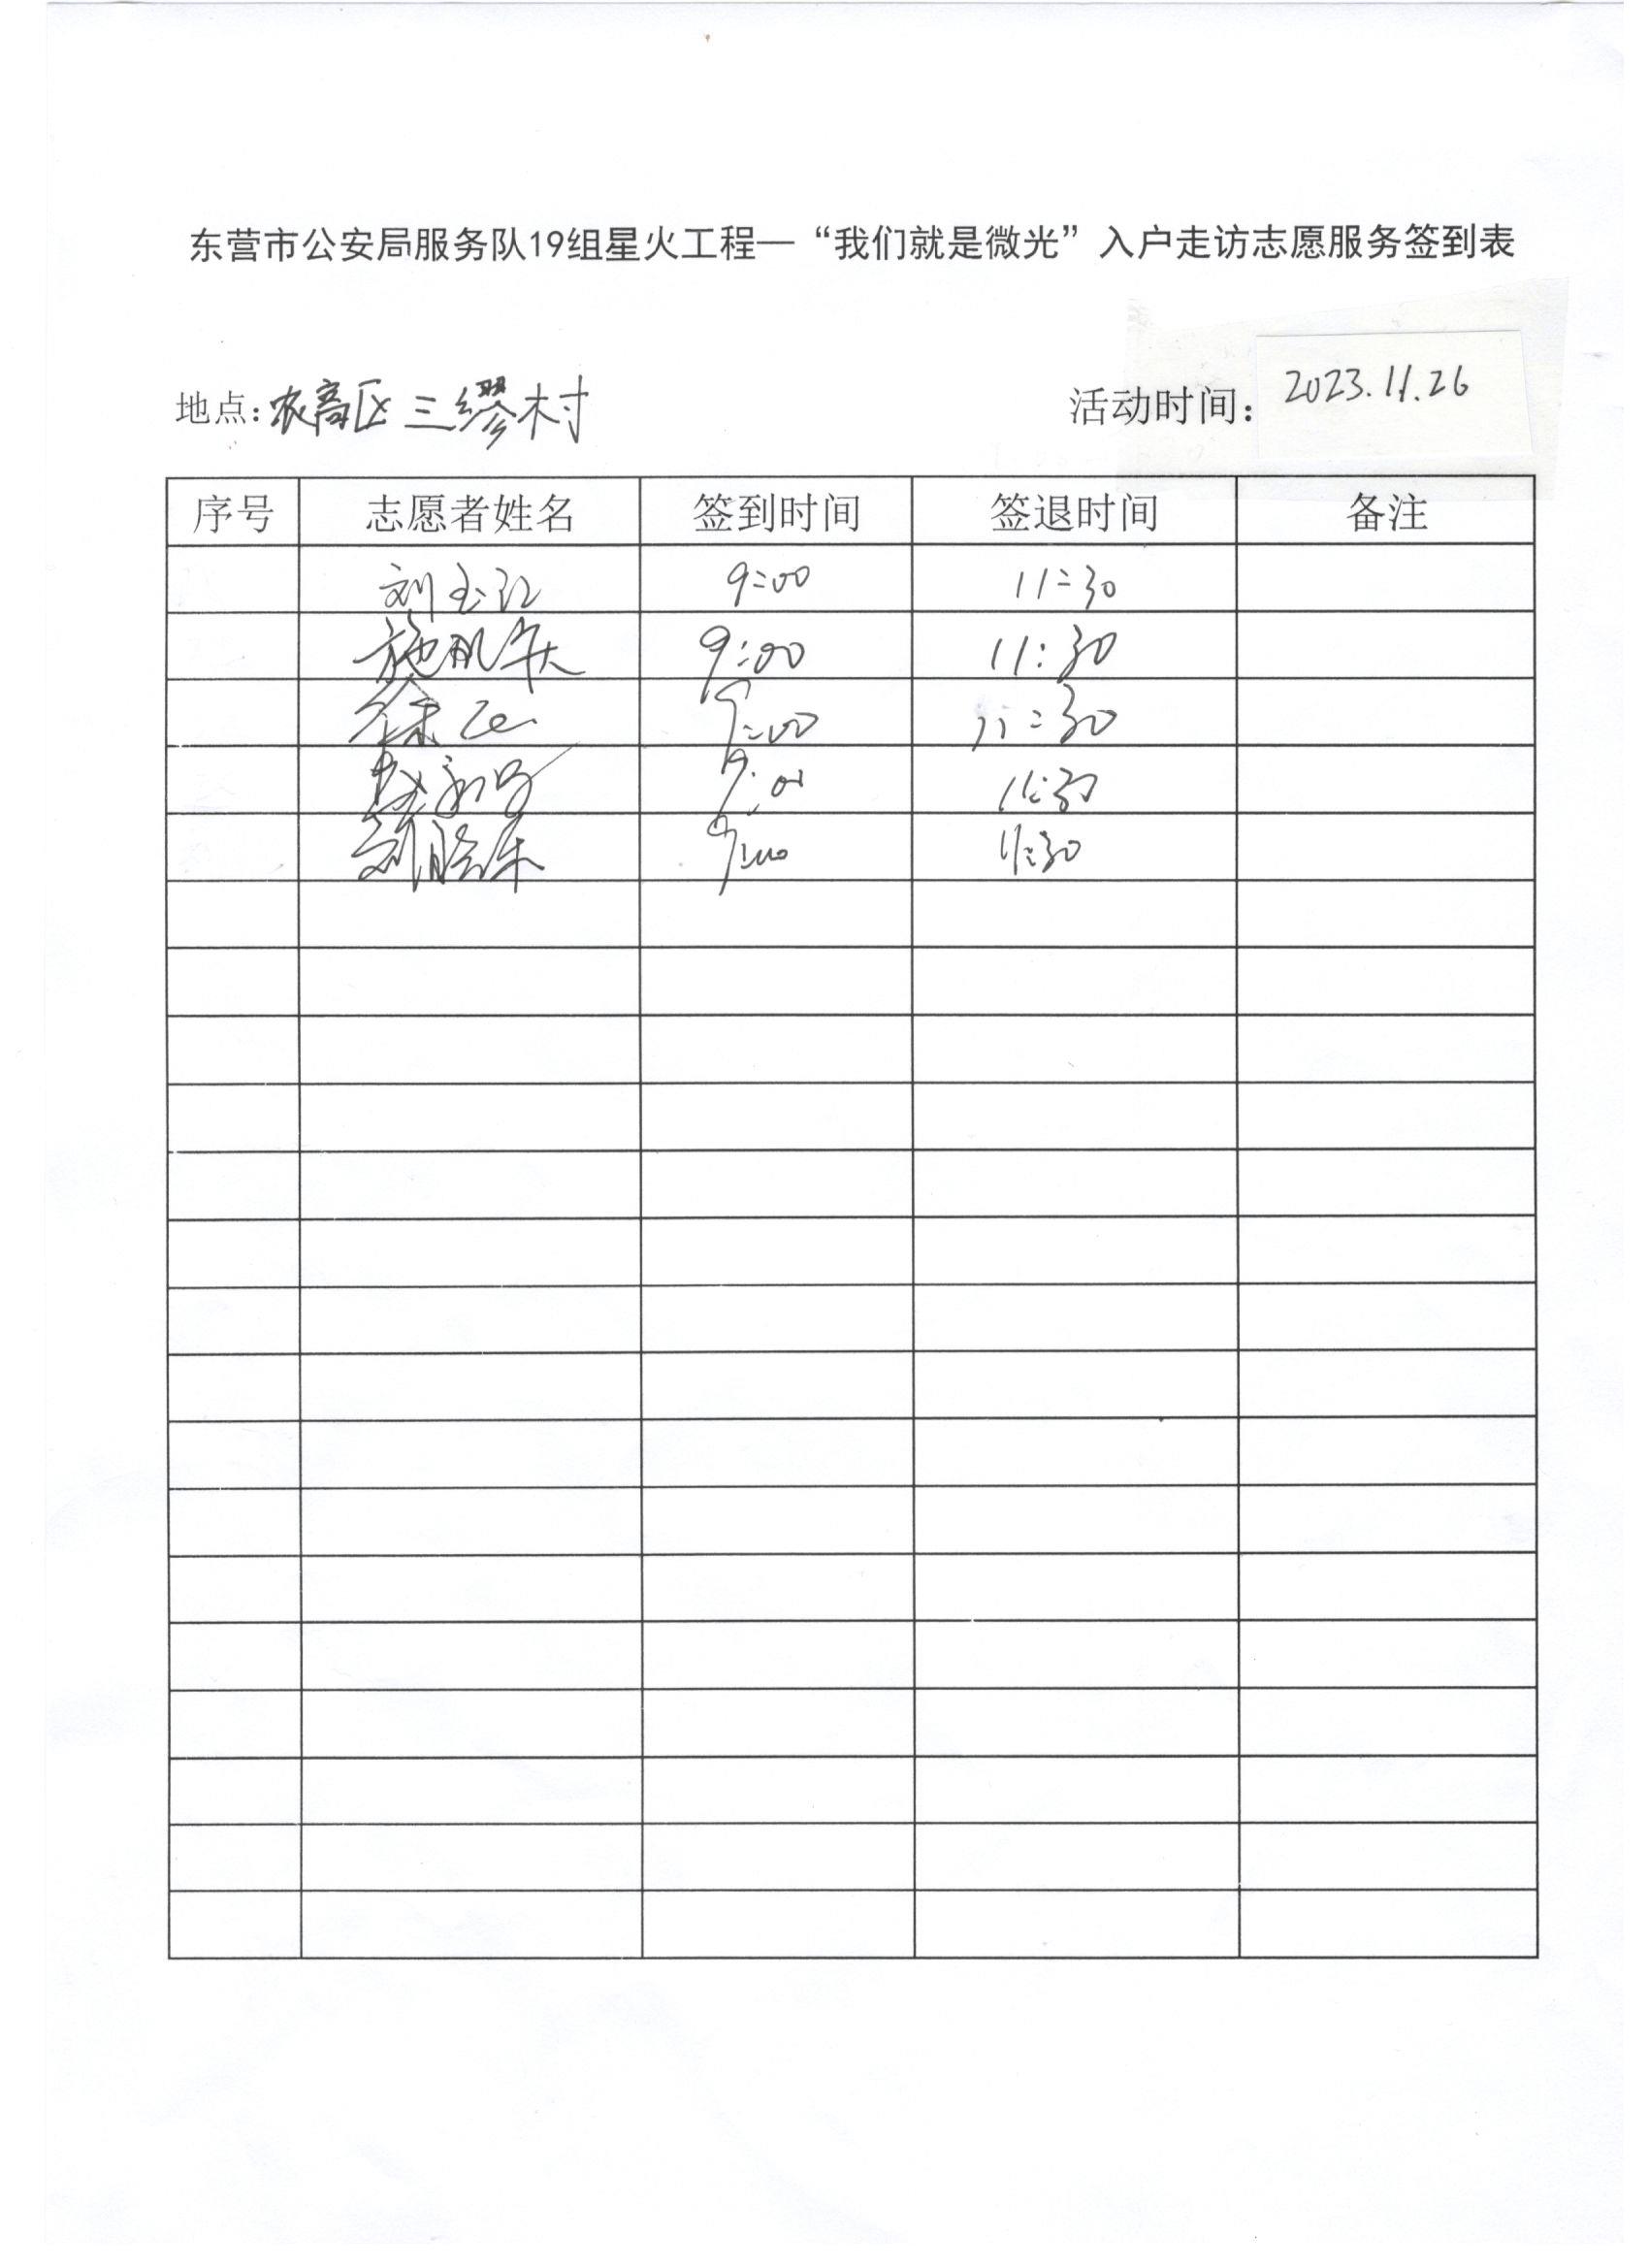 东营市公安局服务队19组星火工程—“我们就是微光”入户走访志愿服务签到表
地点:农高区三缪村 活动时间: 2023.11.26
序号 志愿者姓名 签到时间 签退时间 备注
刘玉江 9:00 11:30
施 9:00 11:30
徐 9:00 11:30
赵 9:00 11:30
刘胜军 9:00 11:30